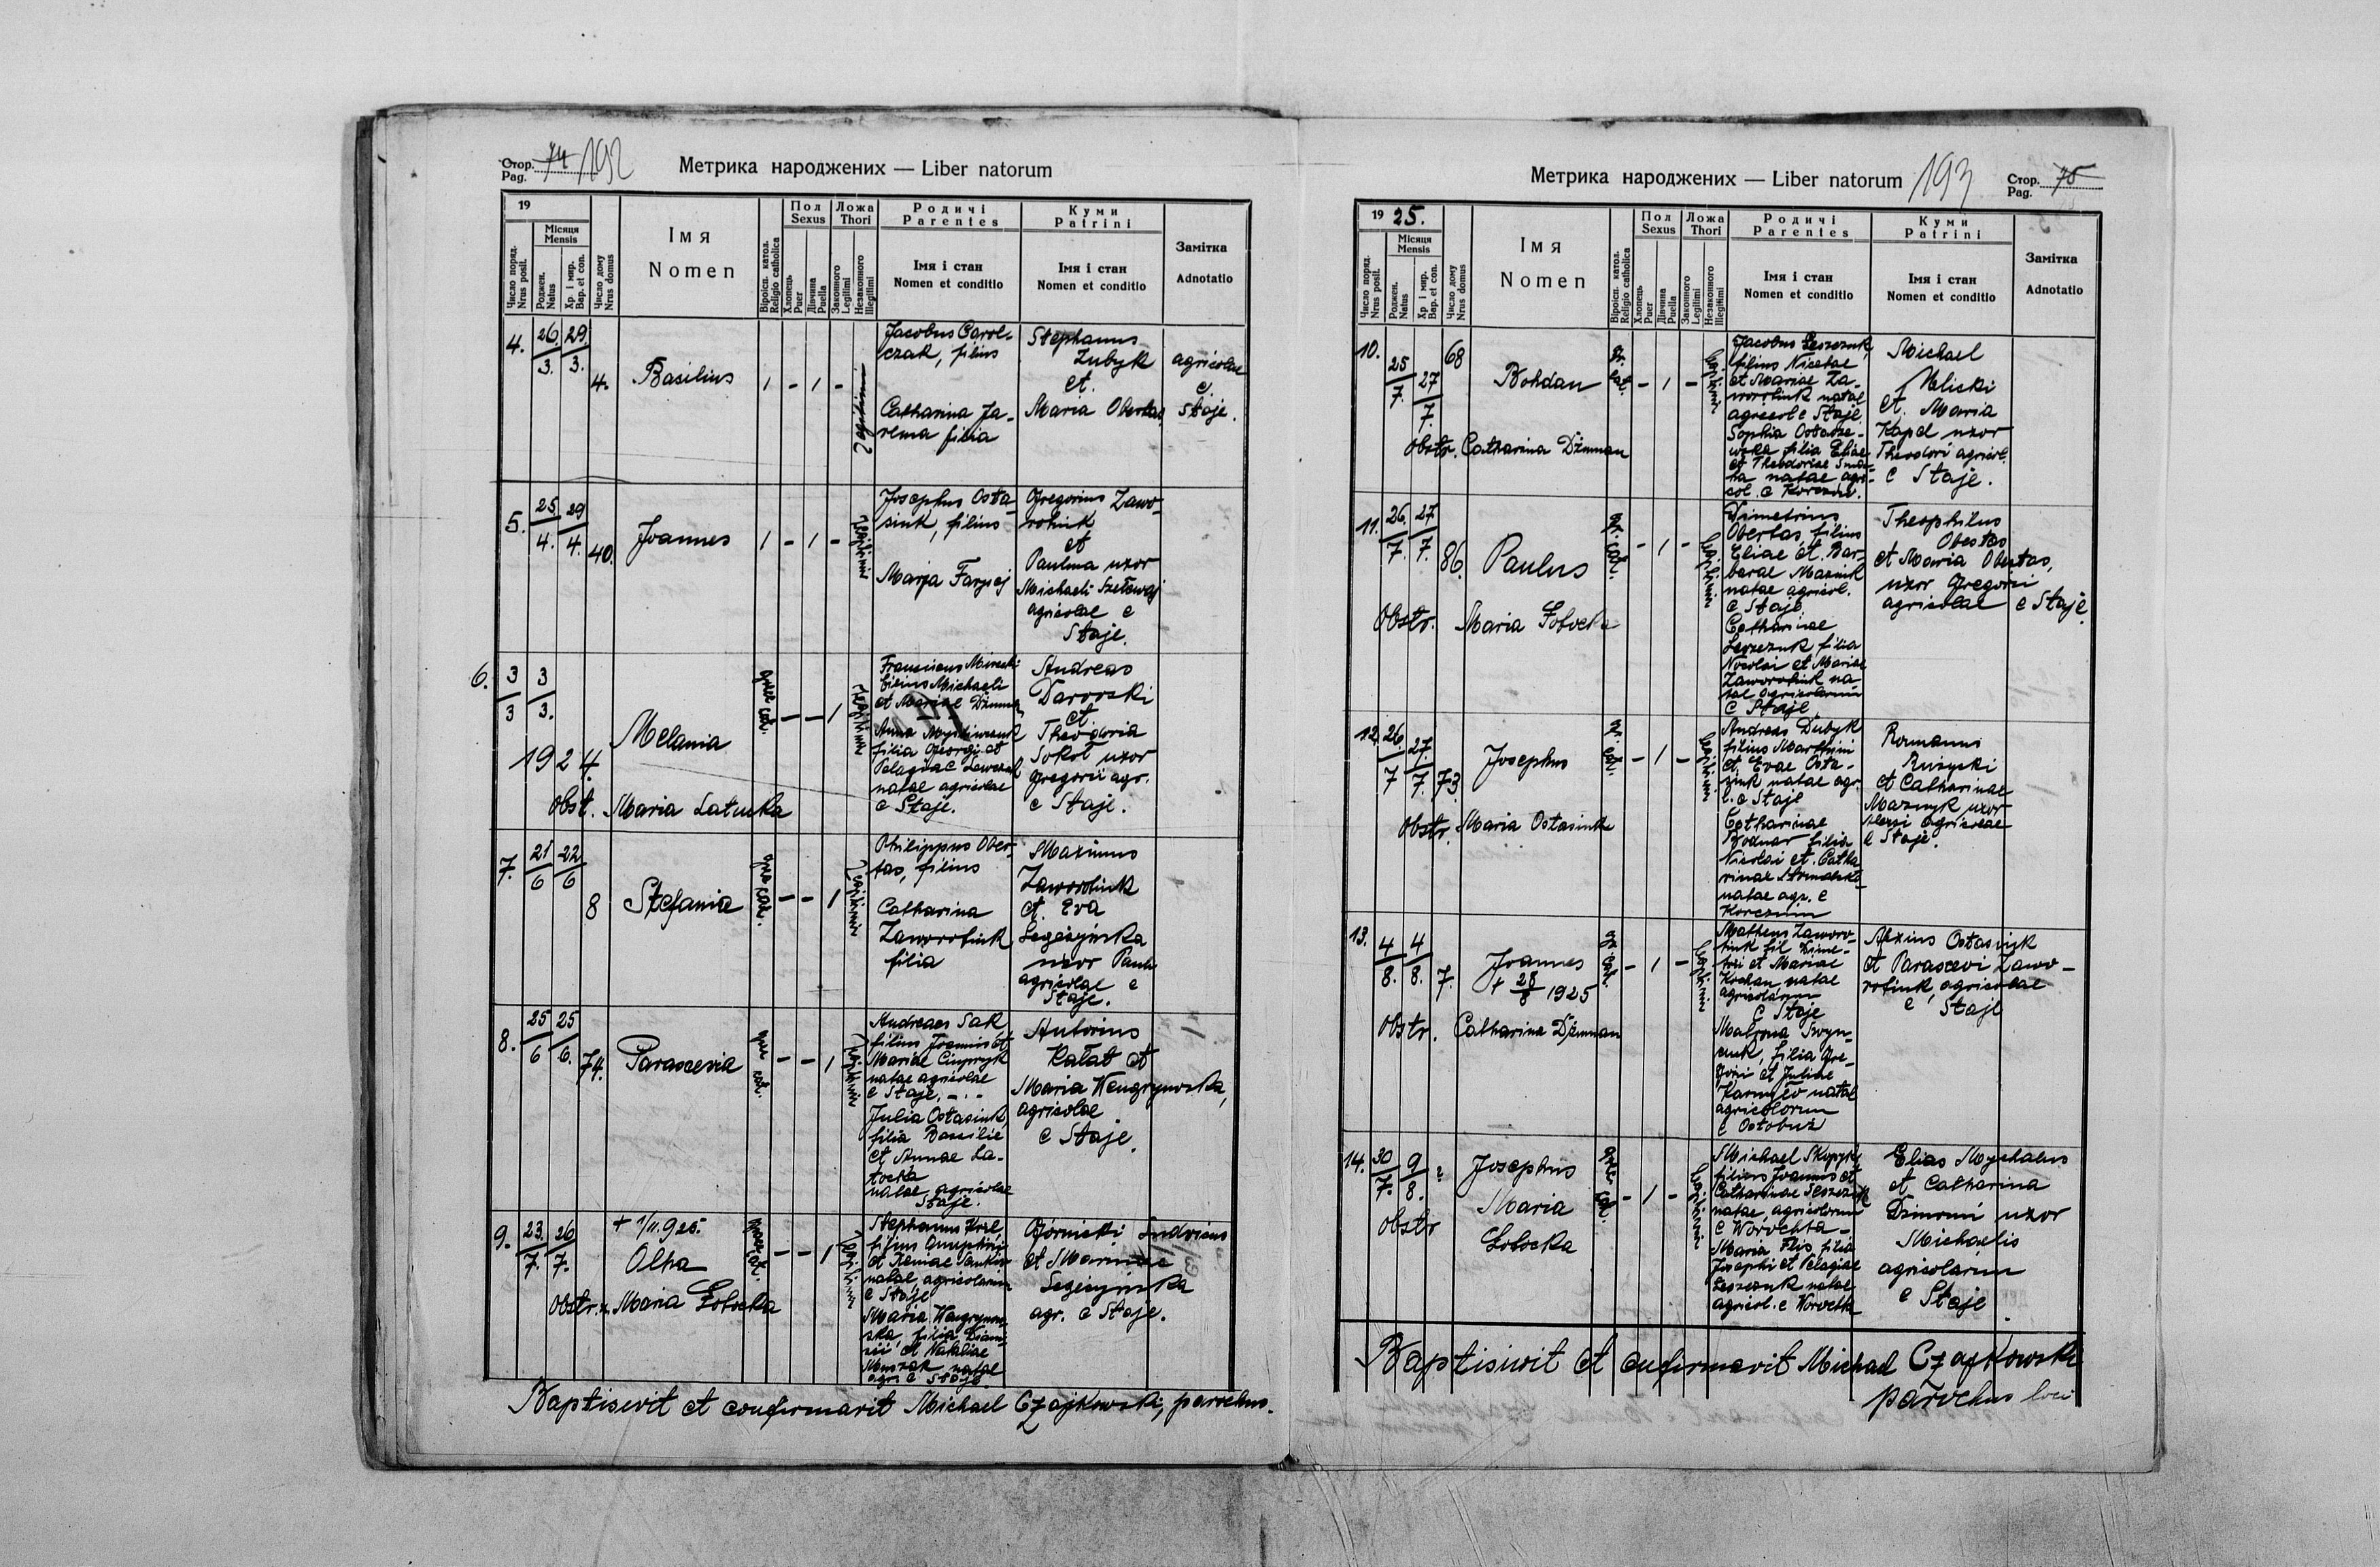 Стор. 74 192
Pag.
Метрика народжених — Liber natorum
19
Число поряд. Nrus posit.
Місяця Mensis
Роджен. Natus
Хр і мир. Bap. et con.
Число дому Nrus domus
Імя
Nomen
Віроісп. катол. Religio catholica
Пол Sexus
Хлопець Puer
Дівчина Puella
Ложа Thori
Законного Legitimi
Незаконного Illegitimi
Родичі
Parentes
Імя і стан
Nomen et conditio
Куми
Patrini
Імя і стан
Nomen et conditio
Замітка
Adnotatio
4. 26/3. 29/3. 4. Basilius 1 - 1 - legitimi
Jacobus Carol-
czak, filius
Catharina Ja-
rema filia
Stephanus
Zubyk
et
Maria Obertas
agricolae
e
Staje.
5. 25/4. 29/4. 40. Joannes 1 - 1 - legitimi
Josephus Osta-
siuk, filius
Maria
Gregorius Zawo-
rotiuk
et
Paulina uxor
Michaeli
agricolae e
Staje.
6. 3/3 3/3. 1924. Melania - - 1 legitimi
obst. Maria Latucka
Franciscus
filius Michaeli
et Mariae
Anna
filia Georgi et
Pelagiae
natae agricolae
e Staje.
Andreas
Darovski
et
Theodoria
Sokot uxor
Gregorii agr.
e Staje.
7. 21/6 22/6 8 Stefania - - 1 legitimi
Philippus Ober-
tas, filius
Catharina
Zaworotiuk
filia
Maximus
Zaworotiuk
et Eva
uxor Pauli
agricolae e
Staje.
8. 25/6 25/6. 74. Parascevia - - 1 legitimi
Andreas Sak,
filius Joannis et
Mariae
natae agricolae
e Staje, -
Julia Ostasiuk,
filia Bassilie
et Annae La-
tocka
natae agricolae
Staje.
Antonius
Kałat et
Maria Wengrynovska,
agricolae
e Staje.
9. 23./7. 26/7. + 1/11.925. Olha - - 1
obstr. Maria Łotocka
Stephanus
filius
et Xeniae
natae, agricolarum
e Staje
Maria Wengrynow-
ska, filia
et Nataliae
natae
agr. e Staje.
et Mariae
agr. e Staje.
Baptisivit et confirmavit Michael Czajkowski, parochus.
Метрика народжених — Liber natorum 193
Стор. 75
Pag.
19 25.
Число поряд. Nrus posit.
Місяця Mensis
Роджен. Natus
Хр і мир. Bap. et con.
Число дому Nrus domus
Імя
Nomen
Віроісп. катол. Religio catholica
Пол Sexus
Хлопець Puer
Дівчина Puella
Ложа Thori
Законного Legitimi
Незаконного Illegitimi
Родичі
Parentes
Імя і стан
Nomen et conditio
Куми
Patrini
Імя і стан
Nomen et conditio
Замітка
Adnotatio
10. 25/7. 27/7. 68 Bohdan gr. cat. - 1 - legitimi
obstr. Catharina Dżuman
Jacobus Leszczuk,
filius Nicetae
et Mariae Za-
worotiuk natae
agricol e Staje
Sophia
filia Eliae
et Theodoriae
natae agri-
col. e Korczów.
Michael
Melicki
et Maria
Kapel uxor
Theodori agricol.
e Staje.
11. 26./7. 27/7. 86. Paulus gr. cat. - 1 - legitimi
obstr. Maria Łotocka
Dimetrius
Obertas, filius
Eliae et Bar-
barae Maznik
natae agricol.
e Staje
Catharinae
Leszczuk, filia
Nicolai et Mariae
Zaworotiuk na-
tae agricolarum
e Staje
Theophilus
Obertas
et Maria Obertas,
uxor Gregorii
agricolae e Staje.
12. 26/7 27./7. 73. Josephus gr. cat. - 1 - legitimi
obstr. Maria Ostasiuk
Andreas Dubyk
filius Martini
et Evae Osta-
siuk natae agr.
e Staje
Catharinae
Bodnar filia
Nicolai et Catha-
rinae
natae agr. e
Korczmin
Romanus
Rużycki
et Catharinae
Maznyk uxor
agricolae
e Staje.
13. 4/8. 4/8. 7. Joannes gr. cat. - 1 - legitimi
+ 28/8 1925
obstr. Catharina Dżuman
Matheus Zaworo-
tiuk fil Dime-
tri et Mariae
Kochan natae
agricolarum
e Staje
filia Gre-
gori et Juliae
natae
agricolorum
e Ostobuż
Alexius Ostasiyk
et Parascevi Zawo-
rotiuk, agricolae
e Staje
14. 30/7. 9/8. 2 Josephus - 1 - legitimi
obstr Maria
Łotocka
Michael
filius Joannis et
Catharinae
natae, agricolorum
e Worochta -
Maria Flis, filia
Josephi et Pelagiae
Leszczuk natae
agricol. e Worochta
Elias Mychalus
et Catharina
uxor
Michaelis
agricolarum
e Staje.
Baptisivit et confirmavit Michael Czajkowski
parochus loci